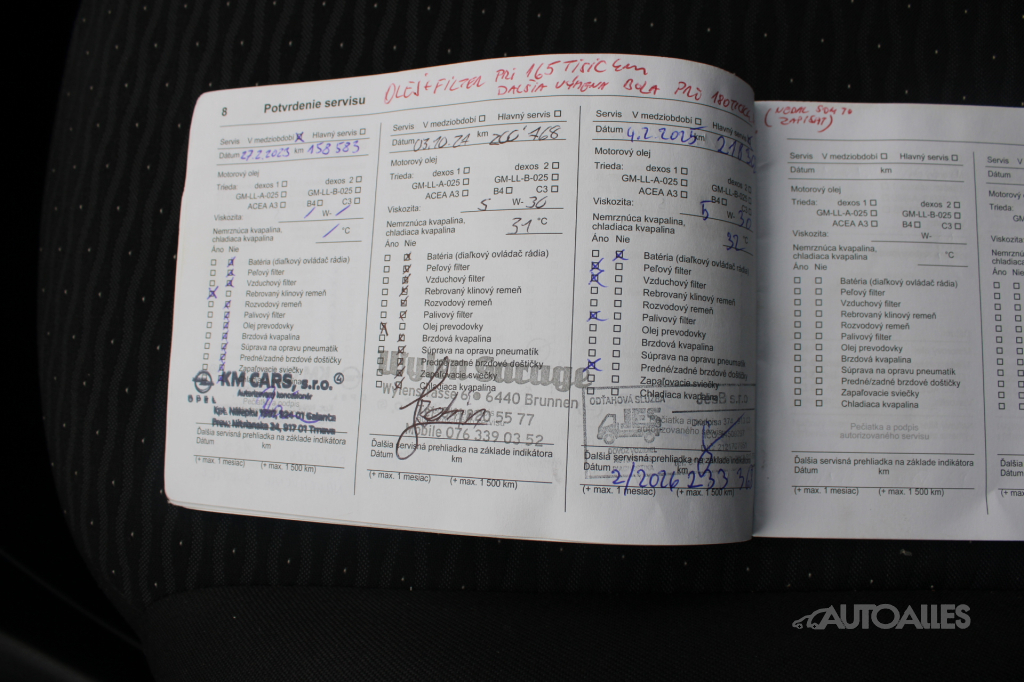 OLEJ + FILTER PRI 165 TISÍC km
ĎALŠIA VÝMENA BOLA PRI
(NEDAL SOM TO
ZAPÍSAŤ)
8 Potvrdenie servisu
Servis V medziobdobí Hlavný servis
Dátum 27.2.2023 km 158 583
Motorový olej
Trieda: dexos 1 dexos 2
GM-LL-A-025 GM-LL-B-025
ACEA A3 B4 C3
Viskozita: / W- /
Nemrznúca kvapalina,
chladiaca kvapalina / °C
Áno Nie
Batéria (diaľkový ovládač rádia)
Peľový filter
Vzduchový filter
Rebrovaný klinový remeň
Rozvodový remeň
Palivový filter
Olej prevodovky
Brzdová kvapalina
Súprava na opravu pneumatík
Predné/zadné brzdové doštičky
Zapaľovacie sviečky
OPEL
KM CARS, s.r.o. 4
Kpt. Nálepku 1990, 924 01 Galanta
Prev.: Nitrianska 24, 917 01 Trnava
Ďalšia servisná prehliadka na základe indikátora
Dátum km
(+ max. 1 mesiac) (+ max. 1 500 km)
Servis V medziobdobí Hlavný servis
Dátum 03.10.24 km 200' 468
Motorový olej
Trieda: dexos 1 dexos 2
GM-LL-A-025 GM-LL-B-025
ACEA A3 B4 C3
Viskozita: 5 W- 30
Nemrznúca kvapalina,
chladiaca kvapalina 31 °C
Áno Nie
Batéria (diaľkový ovládač rádia)
Peľový filter
Vzduchový filter
Rebrovaný klinový remeň
Rozvodový remeň
Palivový filter
Olej prevodovky
Brzdová kvapalina
Súprava na opravu pneumatík
Predné/zadné brzdové doštičky
Zapaľovacie sviečky
Chladiaca kvapalina
Garage
6440 Brunnen
55 77
Mobile 076 339 03 52
Ďalšia servisná prehliadka na základe indikátora
Dátum km
(+ max. 1 mesiac) (+ max. 1 500 km)
Servis V medziobdobí Hlavný servis
Dátum 4.2.2025 km
Motorový olej
Trieda: dexos 1 dexos 2
GM-LL-A-025 GM-LL-B-025
ACEA A3 B4 C3
Viskozita: 5 W- 30
Nemrznúca kvapalina,
chladiaca kvapalina 32 °C
Áno Nie
Batéria (diaľkový ovládač rádia)
Peľový filter
Vzduchový filter
Rebrovaný klinový remeň
Rozvodový remeň
Palivový filter
Olej prevodovky
Brzdová kvapalina
Súprava na opravu pneumatík
Predné/zadné brzdové doštičky
Zapaľovacie sviečky
Chladiaca kvapalina
ODŤAHOVÁ SLUŽBA
s.r.o.
Ďalšia servisná prehliadka na základe indikátora
Dátum km
2/2026 233
(+ max. 1 mesiac) (+ max. 1 500 km)
Servis V medziobdobí Hlavný servis
Dátum km
Motorový olej
Trieda: dexos 1 dexos 2
GM-LL-A-025 GM-LL-B-025
ACEA A3 B4 C3
Viskozita: W-
Nemrznúca kvapalina,
chladiaca kvapalina °C
Áno Nie
Batéria (diaľkový ovládač rádia)
Peľový filter
Vzduchový filter
Rebrovaný klinový remeň
Rozvodový remeň
Palivový filter
Olej prevodovky
Brzdová kvapalina
Súprava na opravu pneumatík
Predné/zadné brzdové doštičky
Zapaľovacie sviečky
Chladiaca kvapalina
Pečiatka a podpis
autorizovaného servisu
Ďalšia servisná prehliadka na základe indikátora
Dátum km
(+ max. 1 mesiac) (+ max. 1 500 km)
Servis
Dátum
Motorový
Trieda:
Viskozita:
Nemrznúca
chladiaca
Áno Nie
Ďalšia
Dátum
(+ max.
AUTOALLES